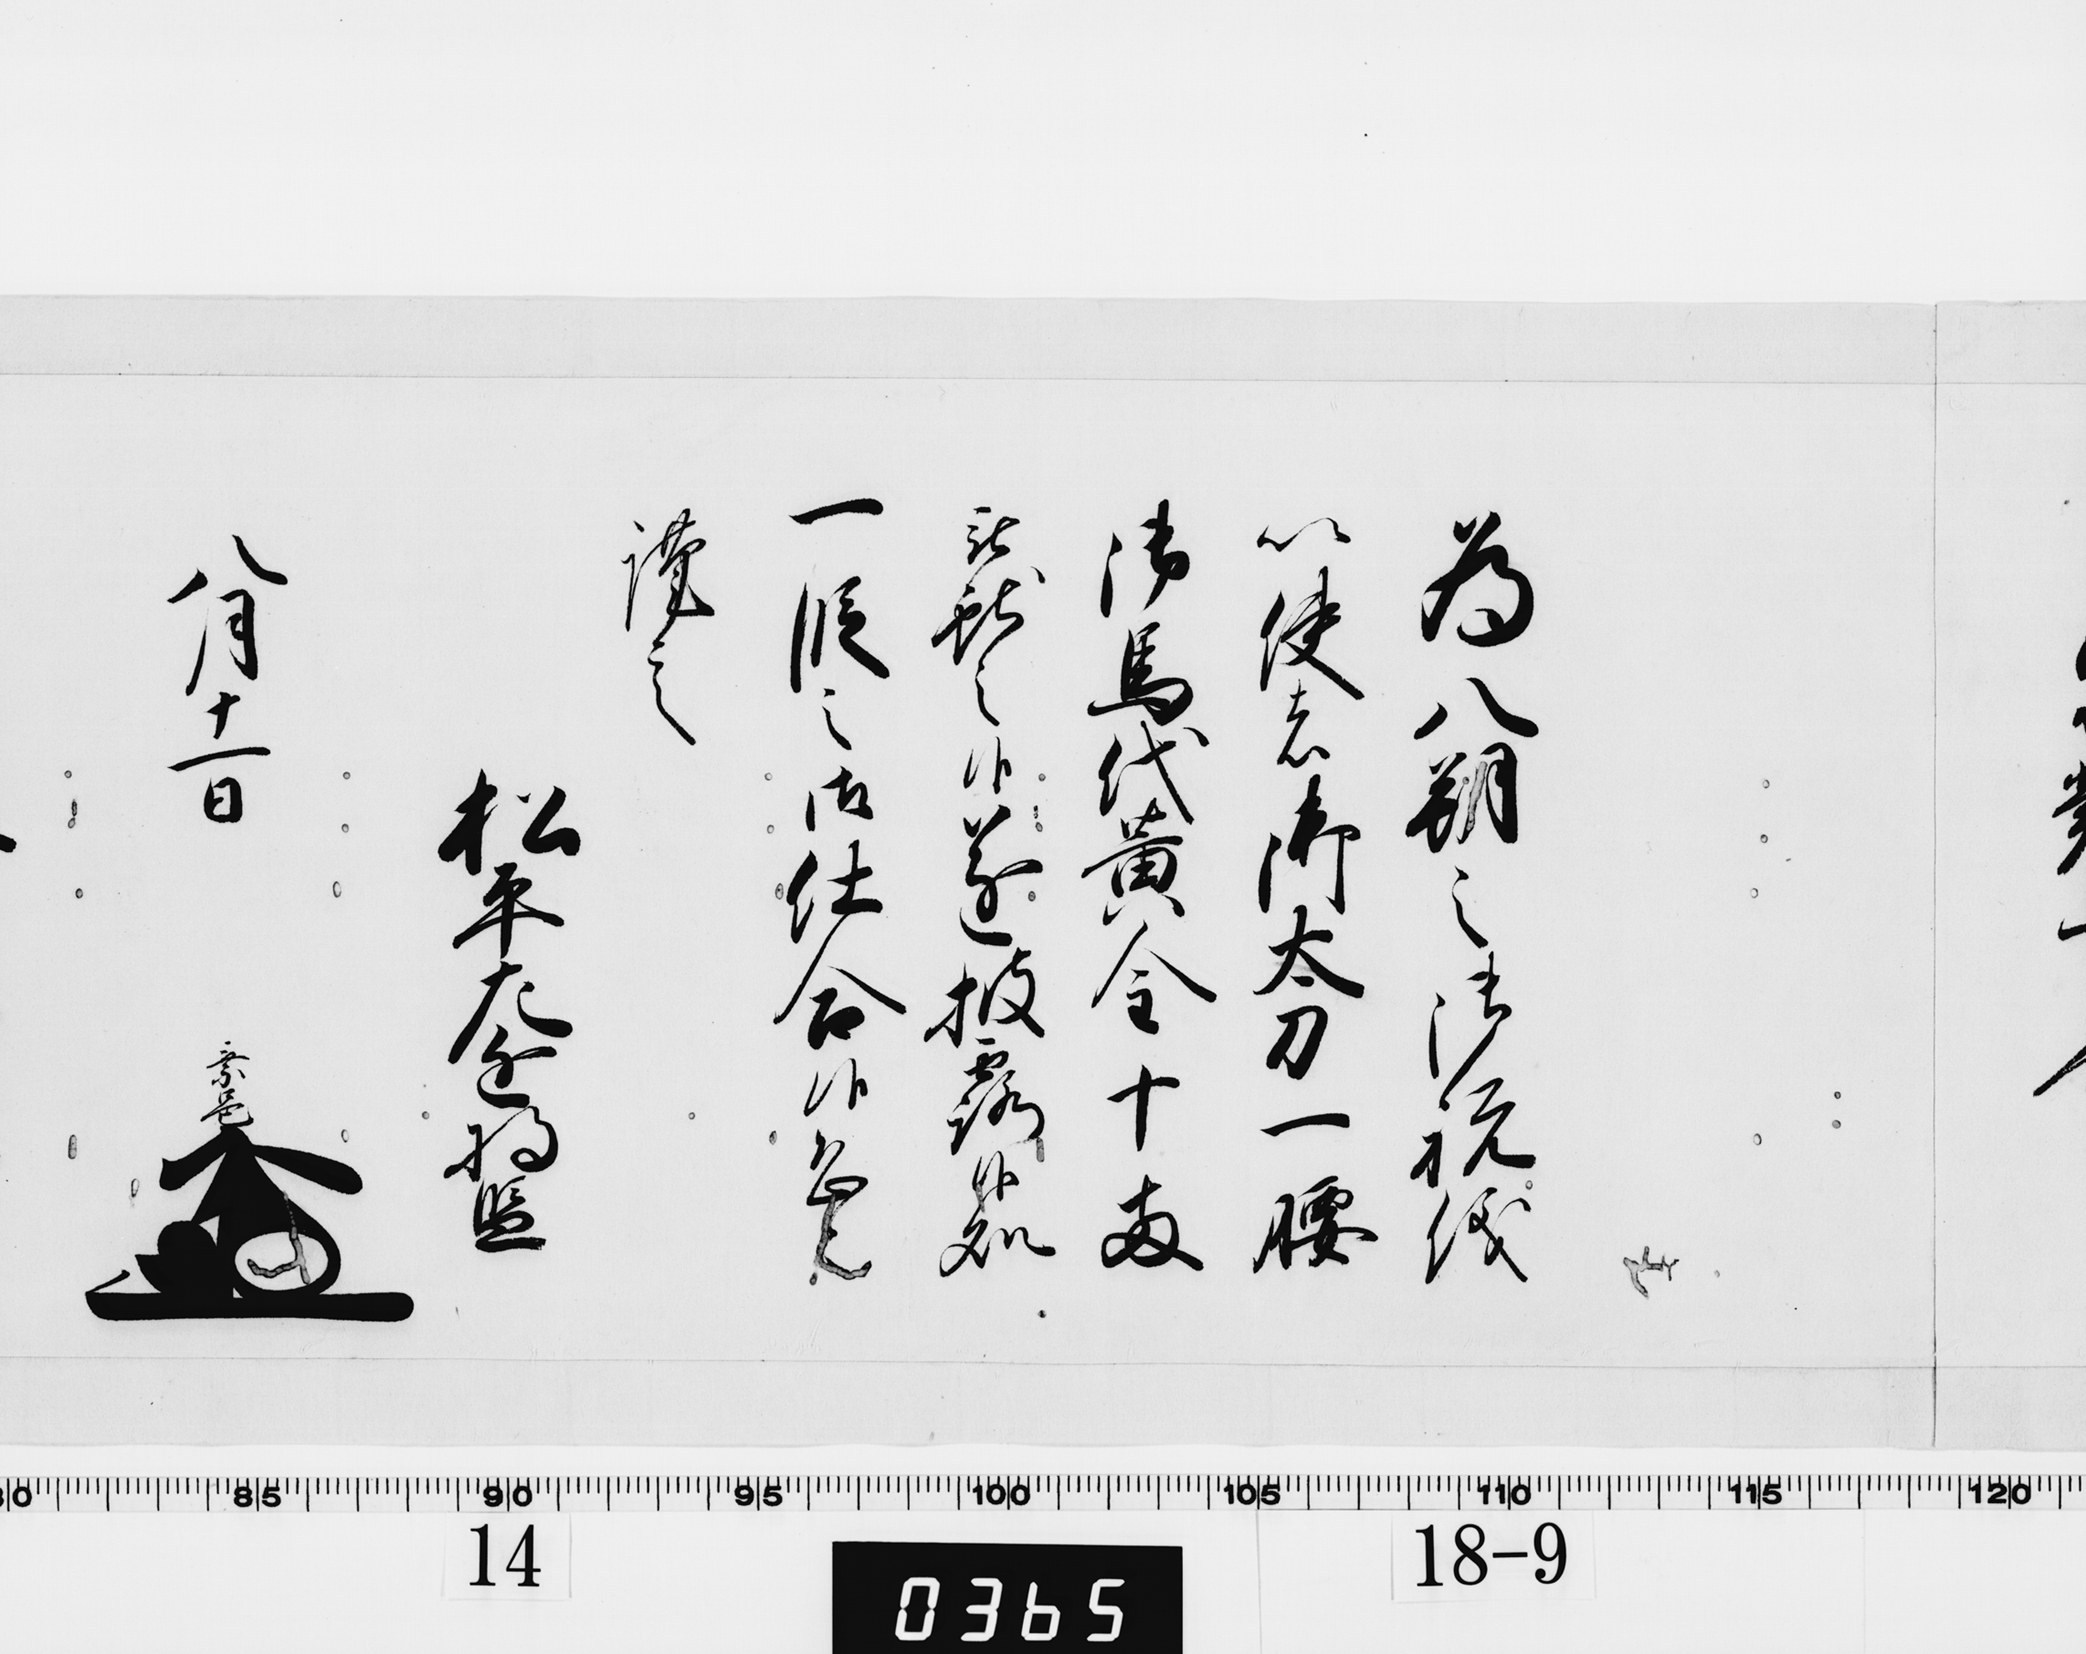 為八朔之御祝儀
以使者御太刀一腰
御馬代黄金十両
被献之候遂披露候処
一段之御仕合候恐々
謹言
松平左近将監
八月十一日
乗邑
80 85 90 95 100 105 110 115 120
14
18-9
0365